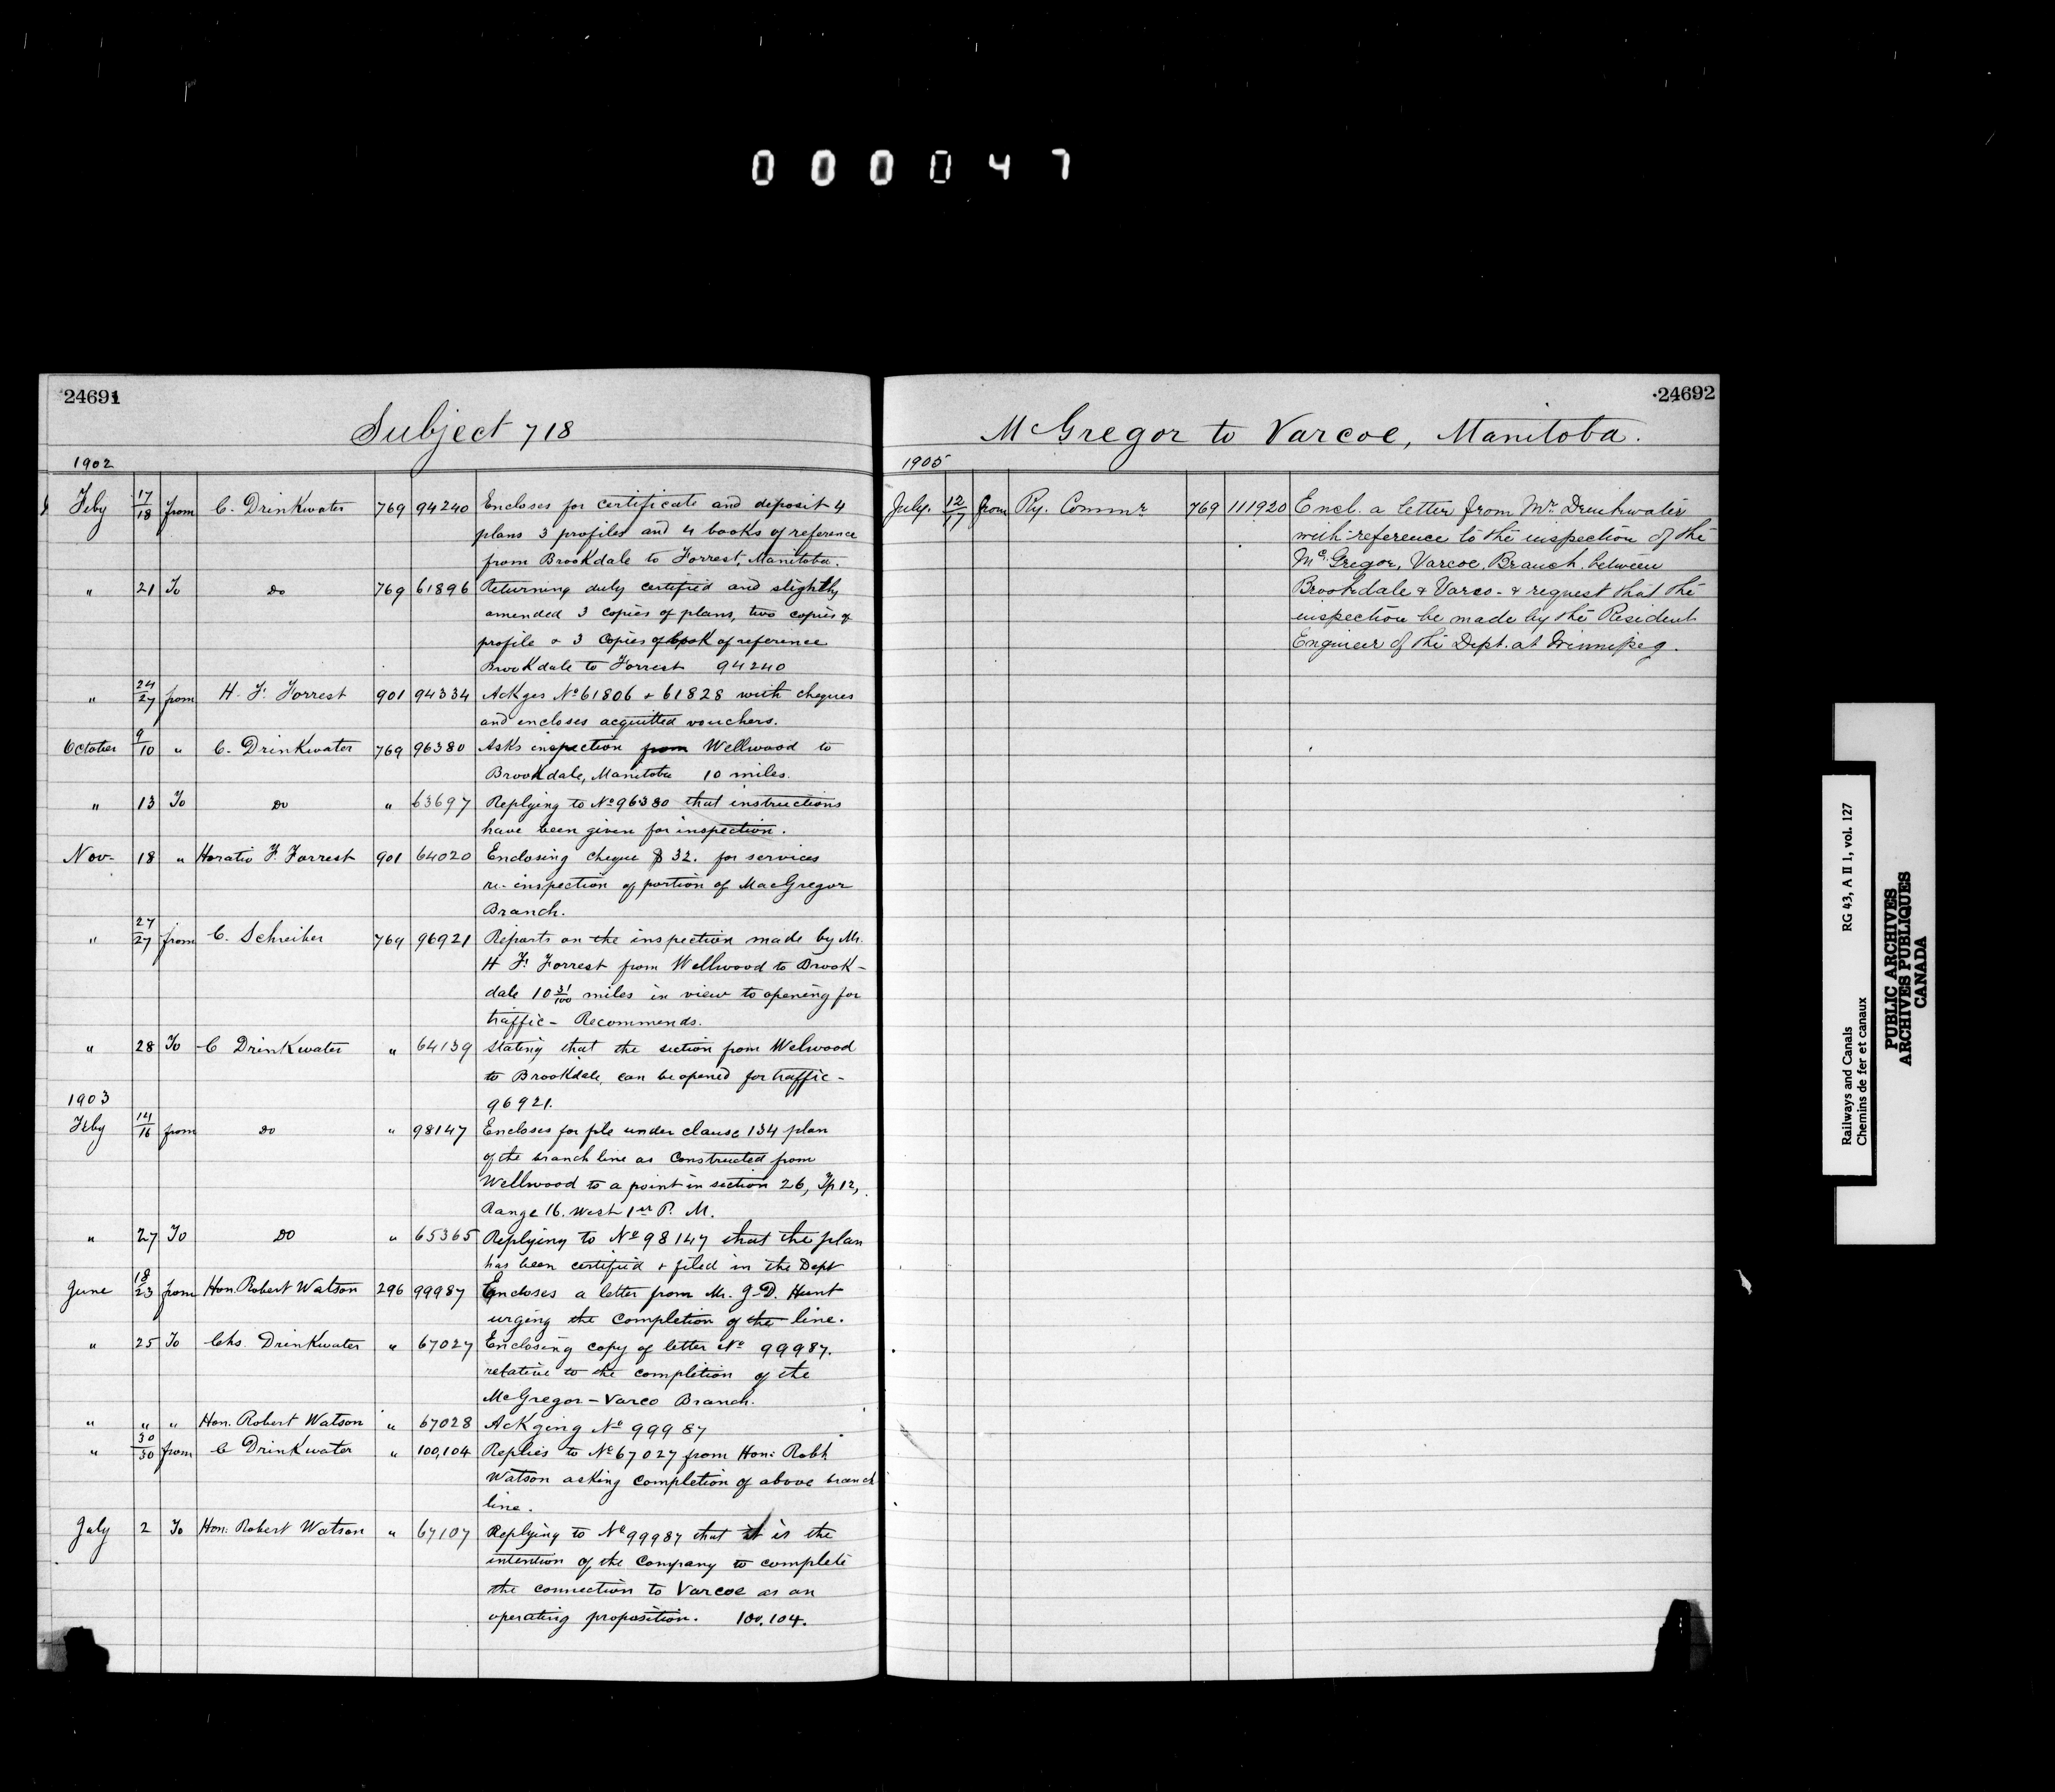 000047
24691
Subject 718
1902
Feby 17/18 from C. Drinkwater 769 94240 Encloses for certificate and deposit 4
plans 3 profiles and 4 books of reference
from Brookdale to Forrest, Manitoba.
" 21 To Do 769 61896 Returning duly certified and slightly
amended 3 copies of plans, two copies of
profile & 3 Copies of book of reference
Brookdale to Forrest 94240
" 24/27 from H. F. Forrest 901 94334 Ackges No 61806 & 61828 with cheques
and encloses acquitted vouchers.
October 9/10 " C. Drinkwater 769 96380 Asks inspection from Wellwood to
Brookdale, Manitoba 10 miles.
" 13 To Do " 63697 Replying to No 96380 that instructions
have been given for inspection.
Nov- 18 " Horatio F. Forrest 901 64020 Enclosing cheque $32. for services
re-inspection of portion of MacGregor
Branch.
" 27/27 from C. Schreiber 769 96921 Reports on the inspection made by Mr.
H F. Forrest from Wellwood to Brook-
dale 10 31/100 miles in view to opening for
traffic- Recommends.
" 28 To C Drinkwater " 64139 Stating that the section from Welwood
to Brookdale, can be opened for traffic-
1903 96921.
Feby 14/16 from Do " 98147 Encloses for file under clause 134 plan
of the branch line as Constructed from
Wellwood to a point in section 26, Tp 12,
Range 16. West 1st P. M.
" 27 To Do " 65365 Replying to No 98147 that the plan
has been certified & filed in the Dept
June 18/23 from Hon. Robert Watson 296 99987 Encloses a letter from Mr. J-D. Hunt
urging the completion of the line.
" 25 To Chs. Drinkwater " 67027 Enclosing copy of letter No 99987.
relative to the completion of the
McGregor-Varco Branch.
" " " Hon. Robert Watson " 67028 Ackging No 99987
" 30/30 from C Drinkwater " 100,104 Replies to No 67027 from Hon: Robt
Watson asking completion of above branch
line.
July 2 To Hon: Robert Watson " 67107 Replying to No 99987 that it is the
intention of the Company to complete
the connection to Varcoe as an
operating proposition. 100,104.
24692
McGregor to Varcoe, Manitoba.
1905
July. 12/17 from Ry. Commr 769 111920 Encl. a letter from Mr. Drinkwater
with reference to the inspection of the
McGregor, Varcoe Branch between
Brookdale & Varco- & request that the
inspection be made by the Resident
Engineer of the Dept. at Winnipeg.
Railways and Canals RG 43, A II 1, vol. 127
Chemins de fer et canaux
PUBLIC ARCHIVES
ARCHIVES PUBLIQUES
CANADA